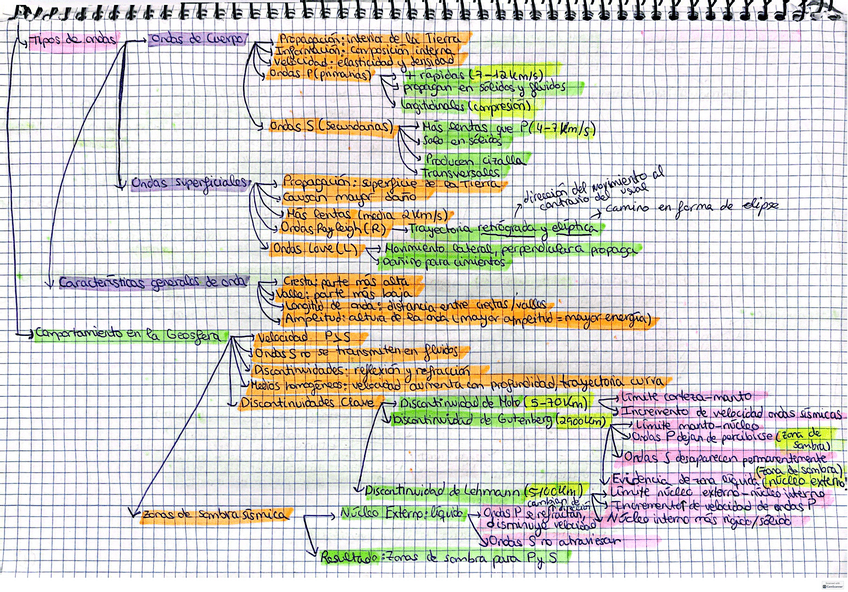 Tipos de ondas
Ondas de Cuerpo
Propagación: interior de la Tierra
Información: composición interna
Velocidad: elasticidad y densidad
Ondas P (primarias)
+ rápidas (7-12 km/s)
propagan en sólidos y fluidos
longitudinales (compresión)
Ondas S (secundarias)
Más lentas que P (4-7 km/s)
Solo en sólidos
Producen cizalla
Transversales
Ondas superficiales
Propagación: superficie de la Tierra
Causan mayor daño
Más lentas (media 2 km/s)
Ondas Rayleigh (R)
Trayectoria retrógrada y elíptica
dirección del movimiento al
contrario del usual
camino en forma de elipse
Ondas Love (L)
Movimiento lateral, perpendicular a propaga
Dañino para cimientos
Características generales de onda
Cresta: parte más alta
Valle: parte más baja
Longitud de onda: distancia entre crestas/valles
Amplitud: altura de la onda (mayor amplitud = mayor energía)
Comportamiento en la Geosfera
Velocidad P>S
Ondas S no se transmiten en fluidos
Discontinuidades: reflexión y refracción
Medios homogéneos: velocidad aumenta con profundidad, trayectoria curva
Discontinuidades Clave
Discontinuidad de Moho (5-70km)
Límite corteza-manto
Incremento de velocidad ondas sísmicas
Discontinuidad de Gutenberg (2900km)
Límite manto-núcleo
Ondas P dejan de percibirse (zona de
sombra)
Ondas S desaparecen permanentemente
(zona de sombra)
Evidencia de zona líquida (núcleo externo)
Discontinuidad de Lehmann (5100km)
Límite núcleo externo-núcleo interno
Incremento de velocidad de ondas P
Núcleo interno más rígido/sólido
Zonas de sombra sísmica
Núcleo Externo: líquido
cambian de
dirección
Ondas P se refractan,
disminuye velocidad
Ondas S no atraviesan
Resultado: Zonas de sombra para P y S